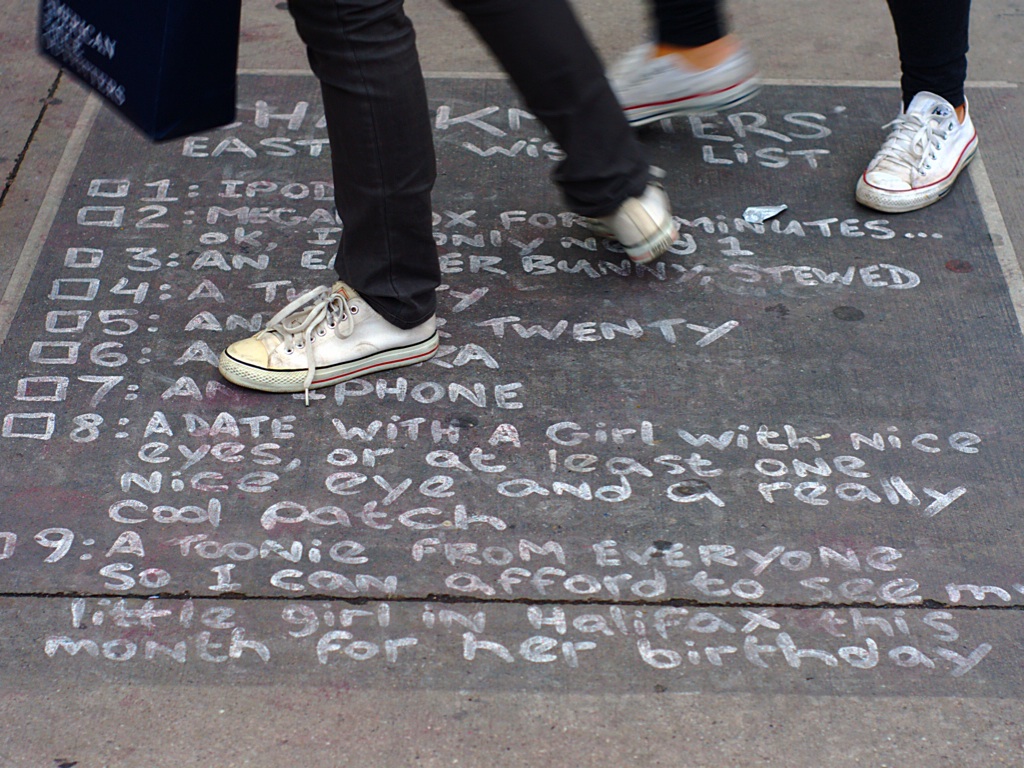 AMERICAN
EAST WIS LIST
1: IPOD
2: MEGA OX FOR MINUTES...
OK, I ONLY 1
3: AN BUNNY, STEWED
4: A
5: TWENTY
6:
7: AN IPHONE
8: A DATE WITH A Girl with Nice
eyes, or at least one
Nice eye and a really
cool patch
9: A TOONie FROM EVERYONE
So I can afford to see my
little girl in Halifax this
month for her birthday